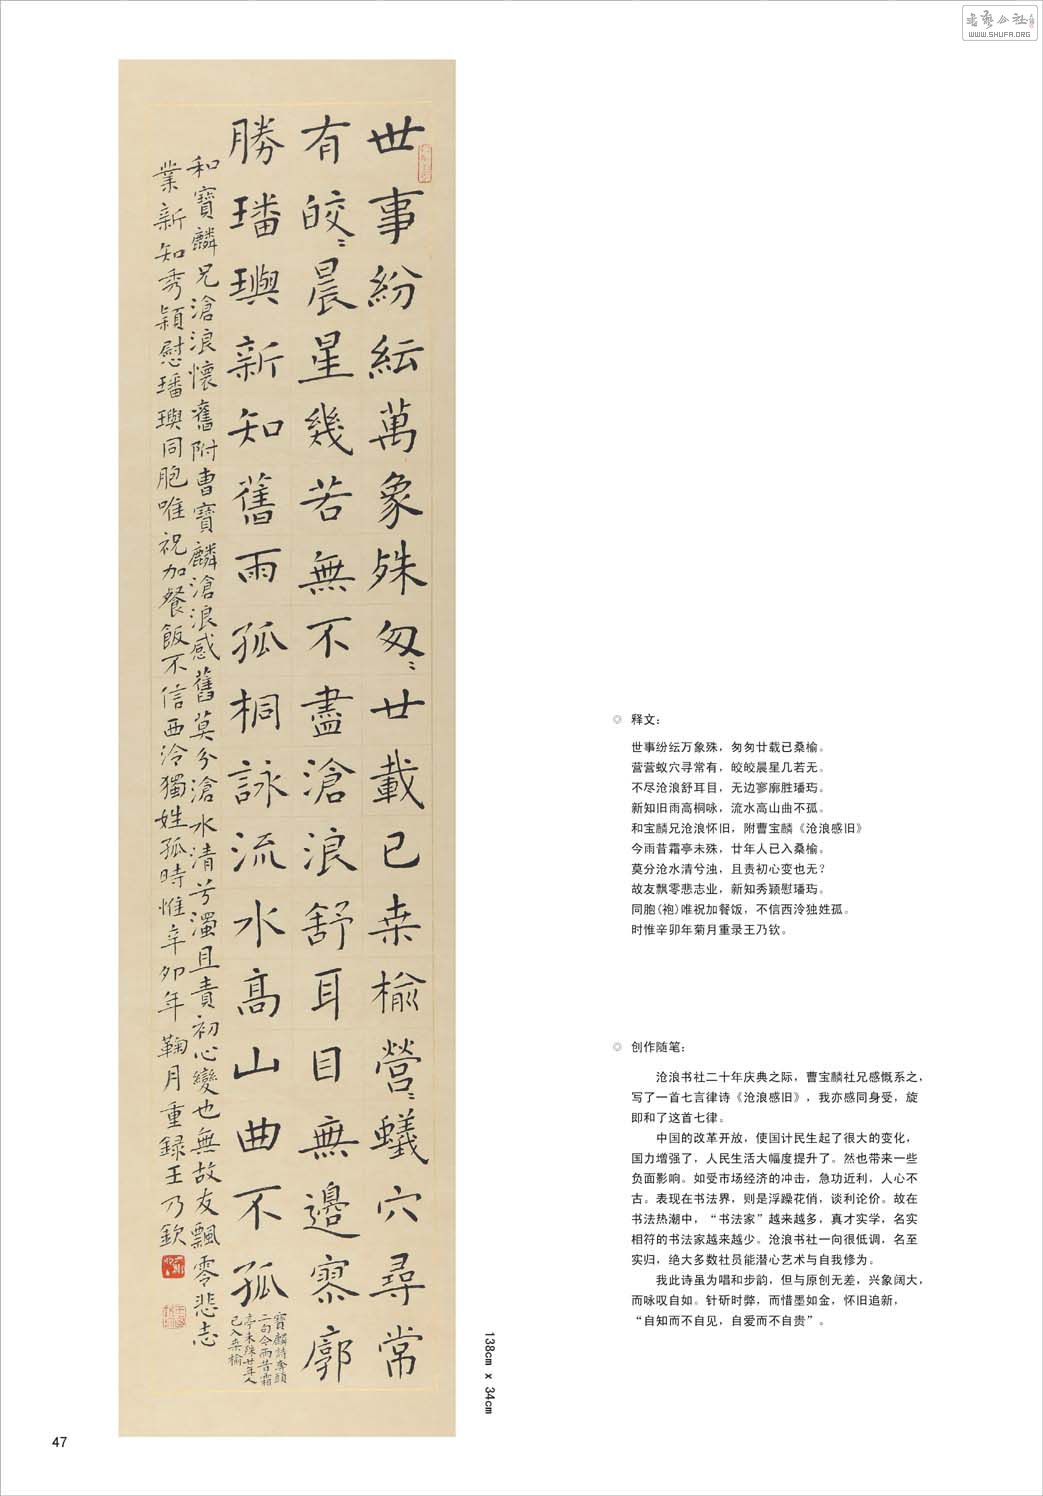 书艺公社
WWW.SHUFA.ORG
世事紛紜萬象殊匆〻廿載已桒榆營〻蟻穴尋常
有皎〻晨星幾若無不盡滄浪舒耳目無邊寥廓
勝璠璵新知舊雨孤桐詠流水高山曲不孤
寶麟詩奪頭
二句今雨昔霜
亭未殊廿年人
已入桒榆
和寶麟兄滄浪懷舊附曹寶麟滄浪感舊莫分滄水清兮濁且責初心變也無故友飄零悲志
業新知秀穎慰璠璵同胞唯祝加餐飯不信西泠獨姓孤時惟辛卯年鞠月重録王乃欽
138cm x 34cm
◎ 释文:
世事纷纭万象殊,匆匆廿载已桑榆。
营营蚁穴寻常有,皎皎晨星几若无。
不尽沧浪舒耳目,无边寥廓胜璠玙。
新知旧雨高桐咏,流水高山曲不孤。
和宝麟兄沧浪怀旧,附曹宝麟《沧浪感旧》
今雨昔霜亭未殊,廿年人已入桑榆。
莫分沧水清兮浊,且责初心变也无?
故友飘零悲志业,新知秀颖慰璠玙。
同胞(袍)唯祝加餐饭,不信西泠独姓孤。
时惟辛卯年菊月重录王乃钦。
◎ 创作随笔:
沧浪书社二十年庆典之际,曹宝麟社兄感慨系之,
写了一首七言律诗《沧浪感旧》,我亦感同身受,旋
即和了这首七律。
中国的改革开放,使国计民生起了很大的变化,
国力增强了,人民生活大幅度提升了。然也带来一些
负面影响。如受市场经济的冲击,急功近利,人心不
古。表现在书法界,则是浮躁花俏,谈利论价。故在
书法热潮中,“书法家”越来越多,真才实学,名实
相符的书法家越来越少。沧浪书社一向很低调,名至
实归,绝大多数社员能潜心艺术与自我修为。
我此诗虽为唱和步韵,但与原创无差,兴象阔大,
而咏叹自如。针砭时弊,而惜墨如金,怀旧追新,
“自知而不自见,自爱而不自贵”。
47